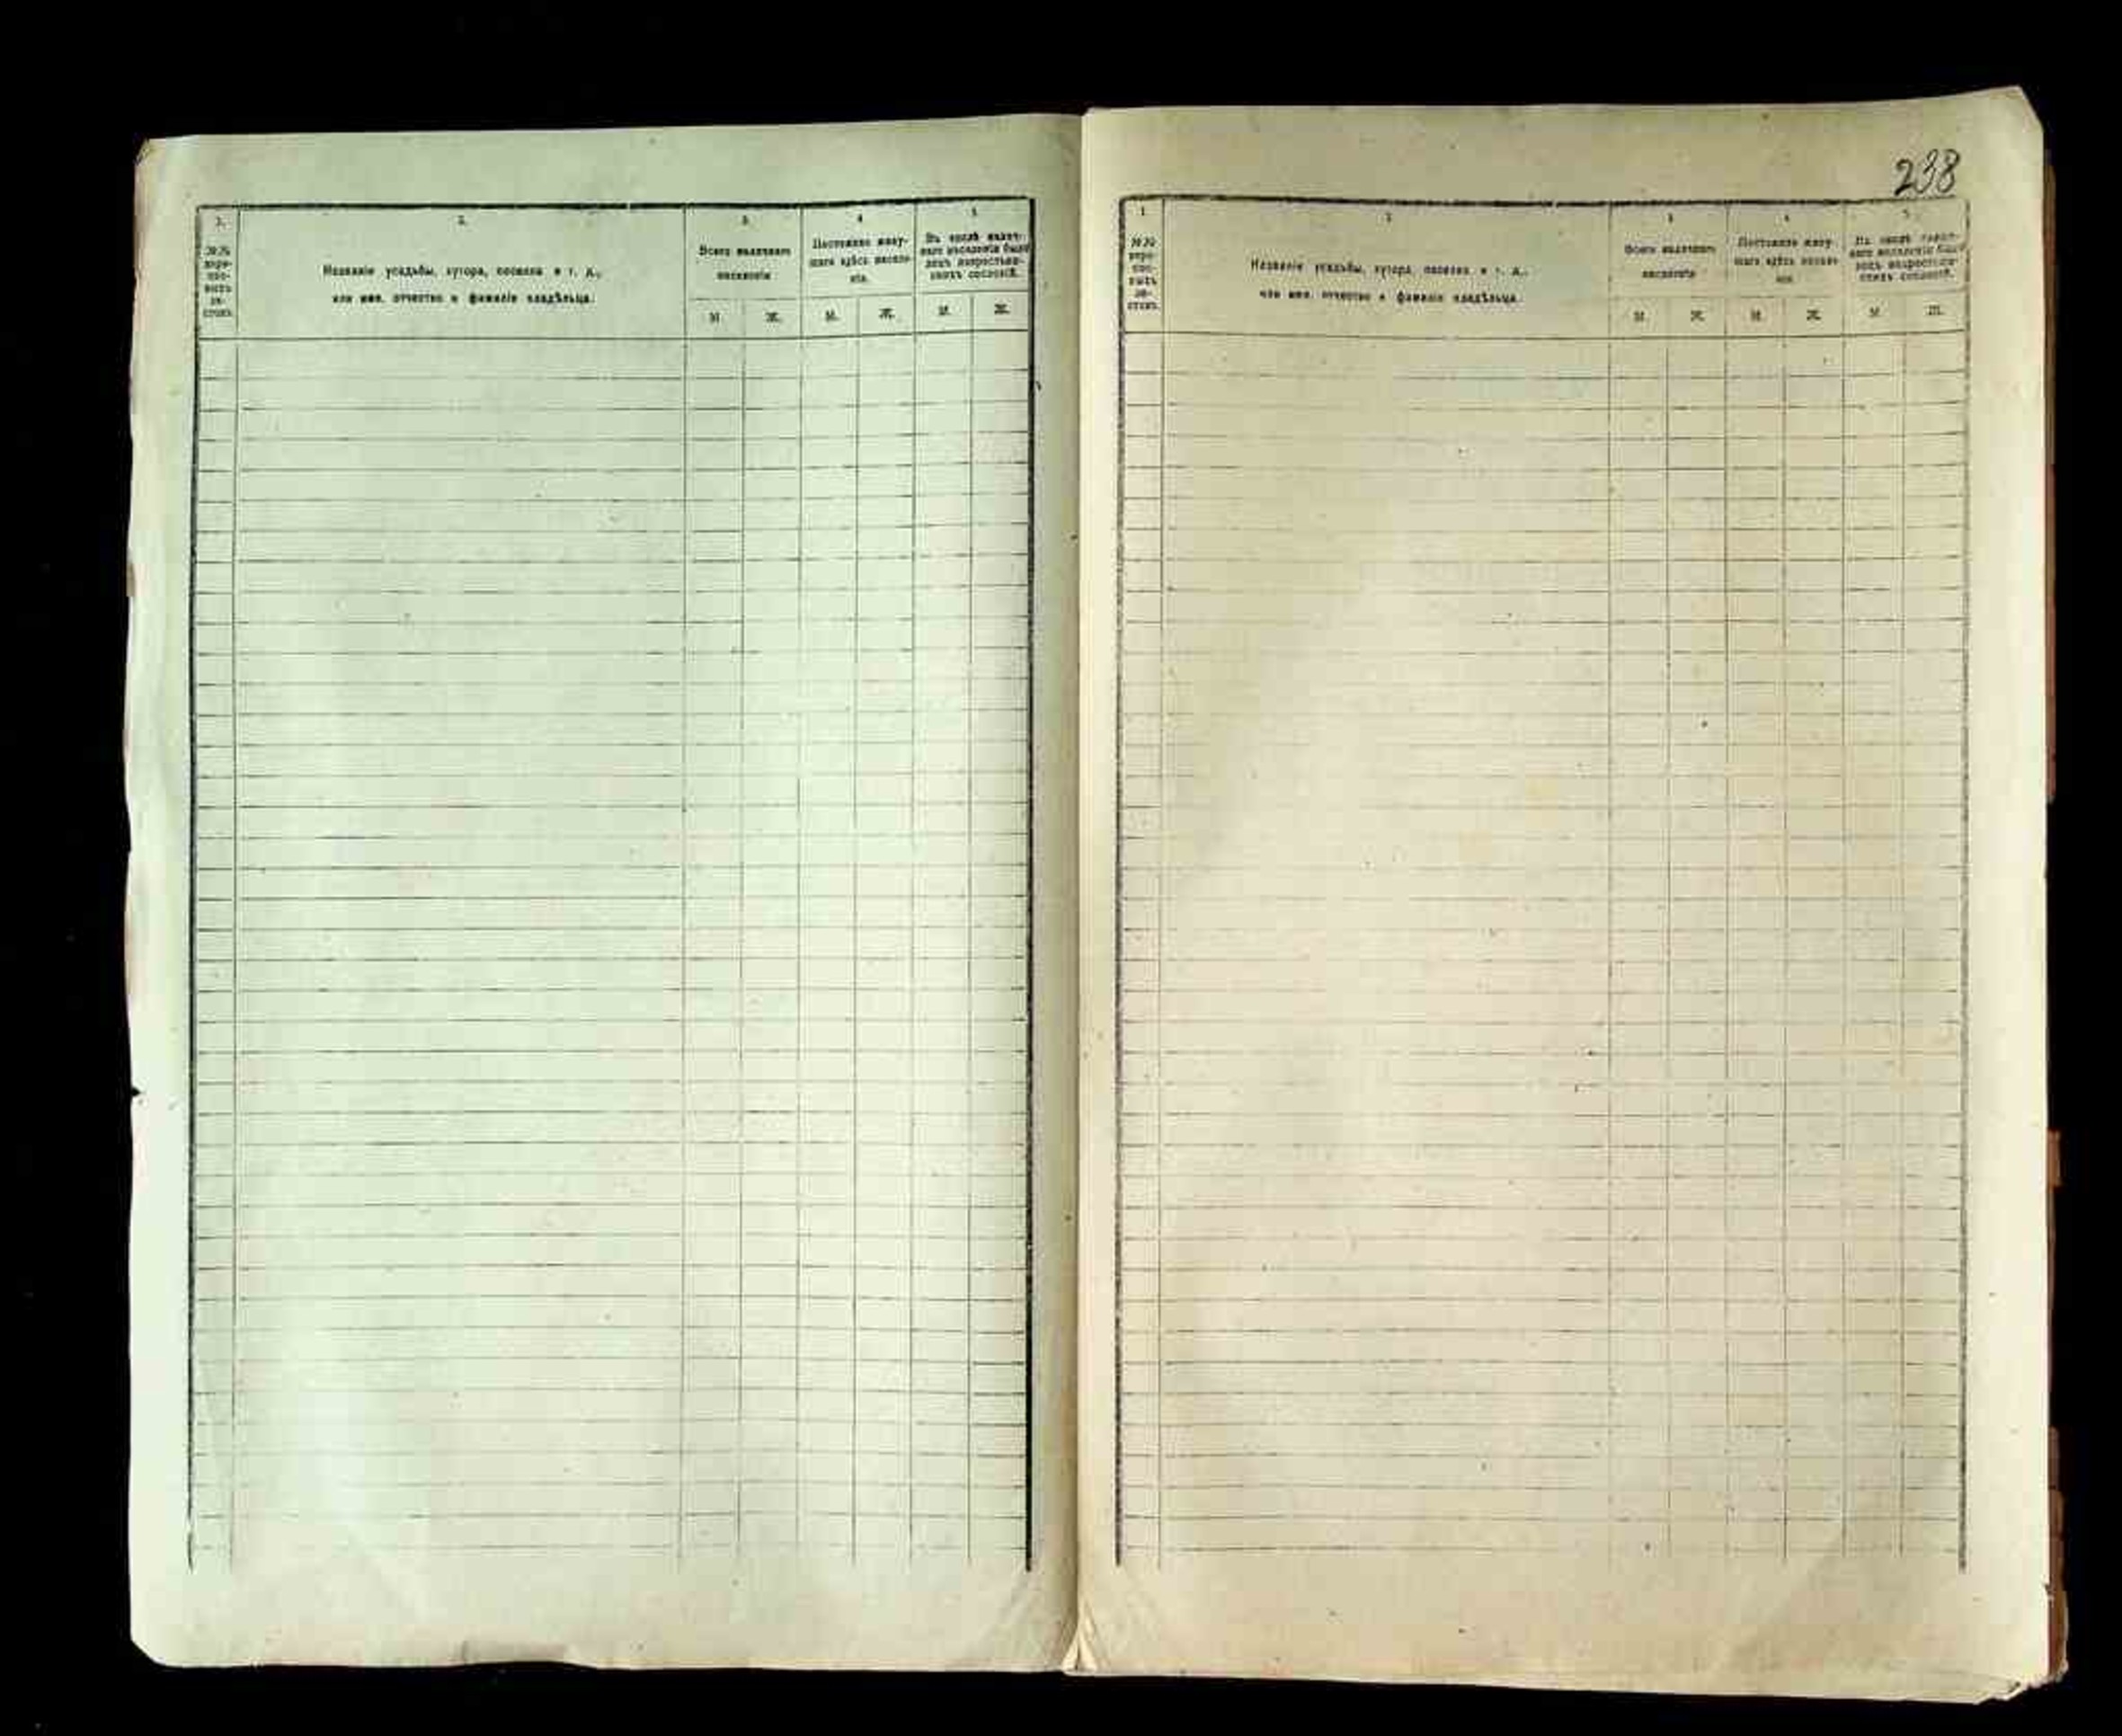 1.
№№
пере-
пис-
ныхъ
ли-
стовъ.
2.
Названіе усадьбы, хутора, поселка и т. д.,
или имя, отчество и фамилія владѣльца.
3.
Всего наличнаго
населенія
М. Ж.
4
Постоянно живу-
щаго здѣсь населе-
нія.
М. Ж.
5
Въ числѣ налич-
наго населенія было
лицъ некрестьян-
скихъ сословій.
М. Ж.
238
1
№№
пере-
пис-
ныхъ
ли-
стовъ.
2
Названіе усадьбы, хутора, поселка и т. д.,
или имя, отчество и фамилія владѣльца.
3
Всего наличнаго
населенія
М. Ж.
4
Постоянно живу-
щаго здѣсь населе-
нія
М. Ж.
5
Въ числѣ налич-
наго населенія было
лицъ некрестьян-
скихъ сословій.
М. Ж.